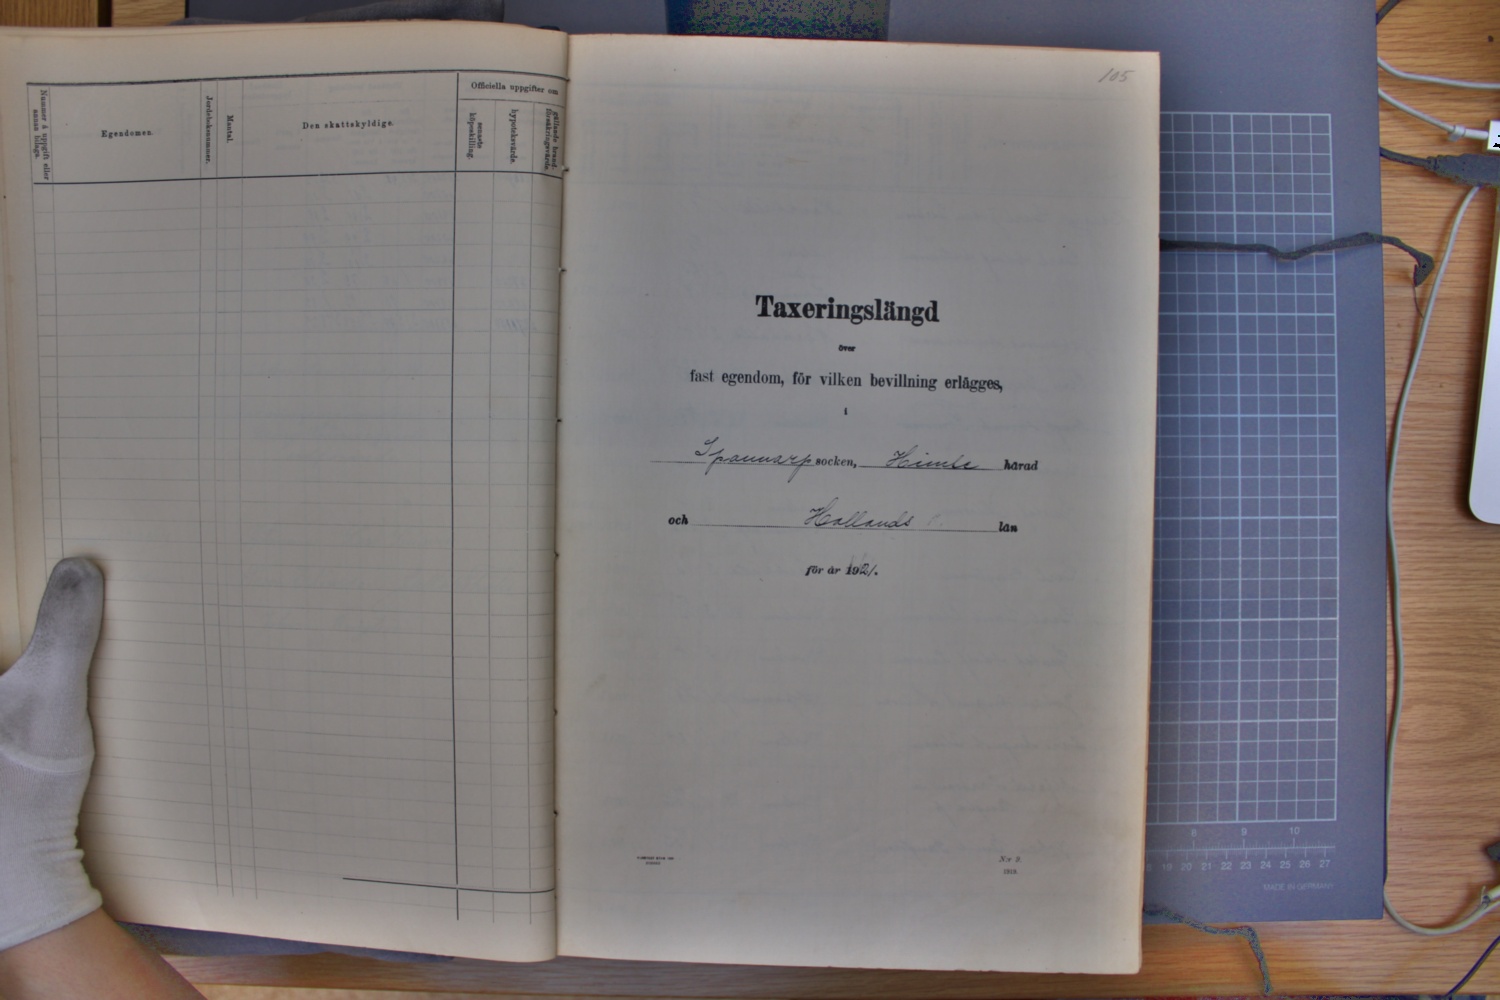 Officiella uppgifter om
Nummer å uppgift eller
annan bilaga.
Egendomen.
Jordeboksnummer.
Mantal.
Den skattskyldige.
senaste
köpeskilling.
hypoteksvärde.
gällande brand-
försäkringsvärde.
105
Taxeringslängd
över
fast egendom, för vilken bevillning erlägges,
i
Spannarp socken, Himle härad
och Hallands län
för år 1921.
N:r 2.
1919.
8 9 10
18 19 20 21 22 23 24 25 26 27
MADE IN GERMANY